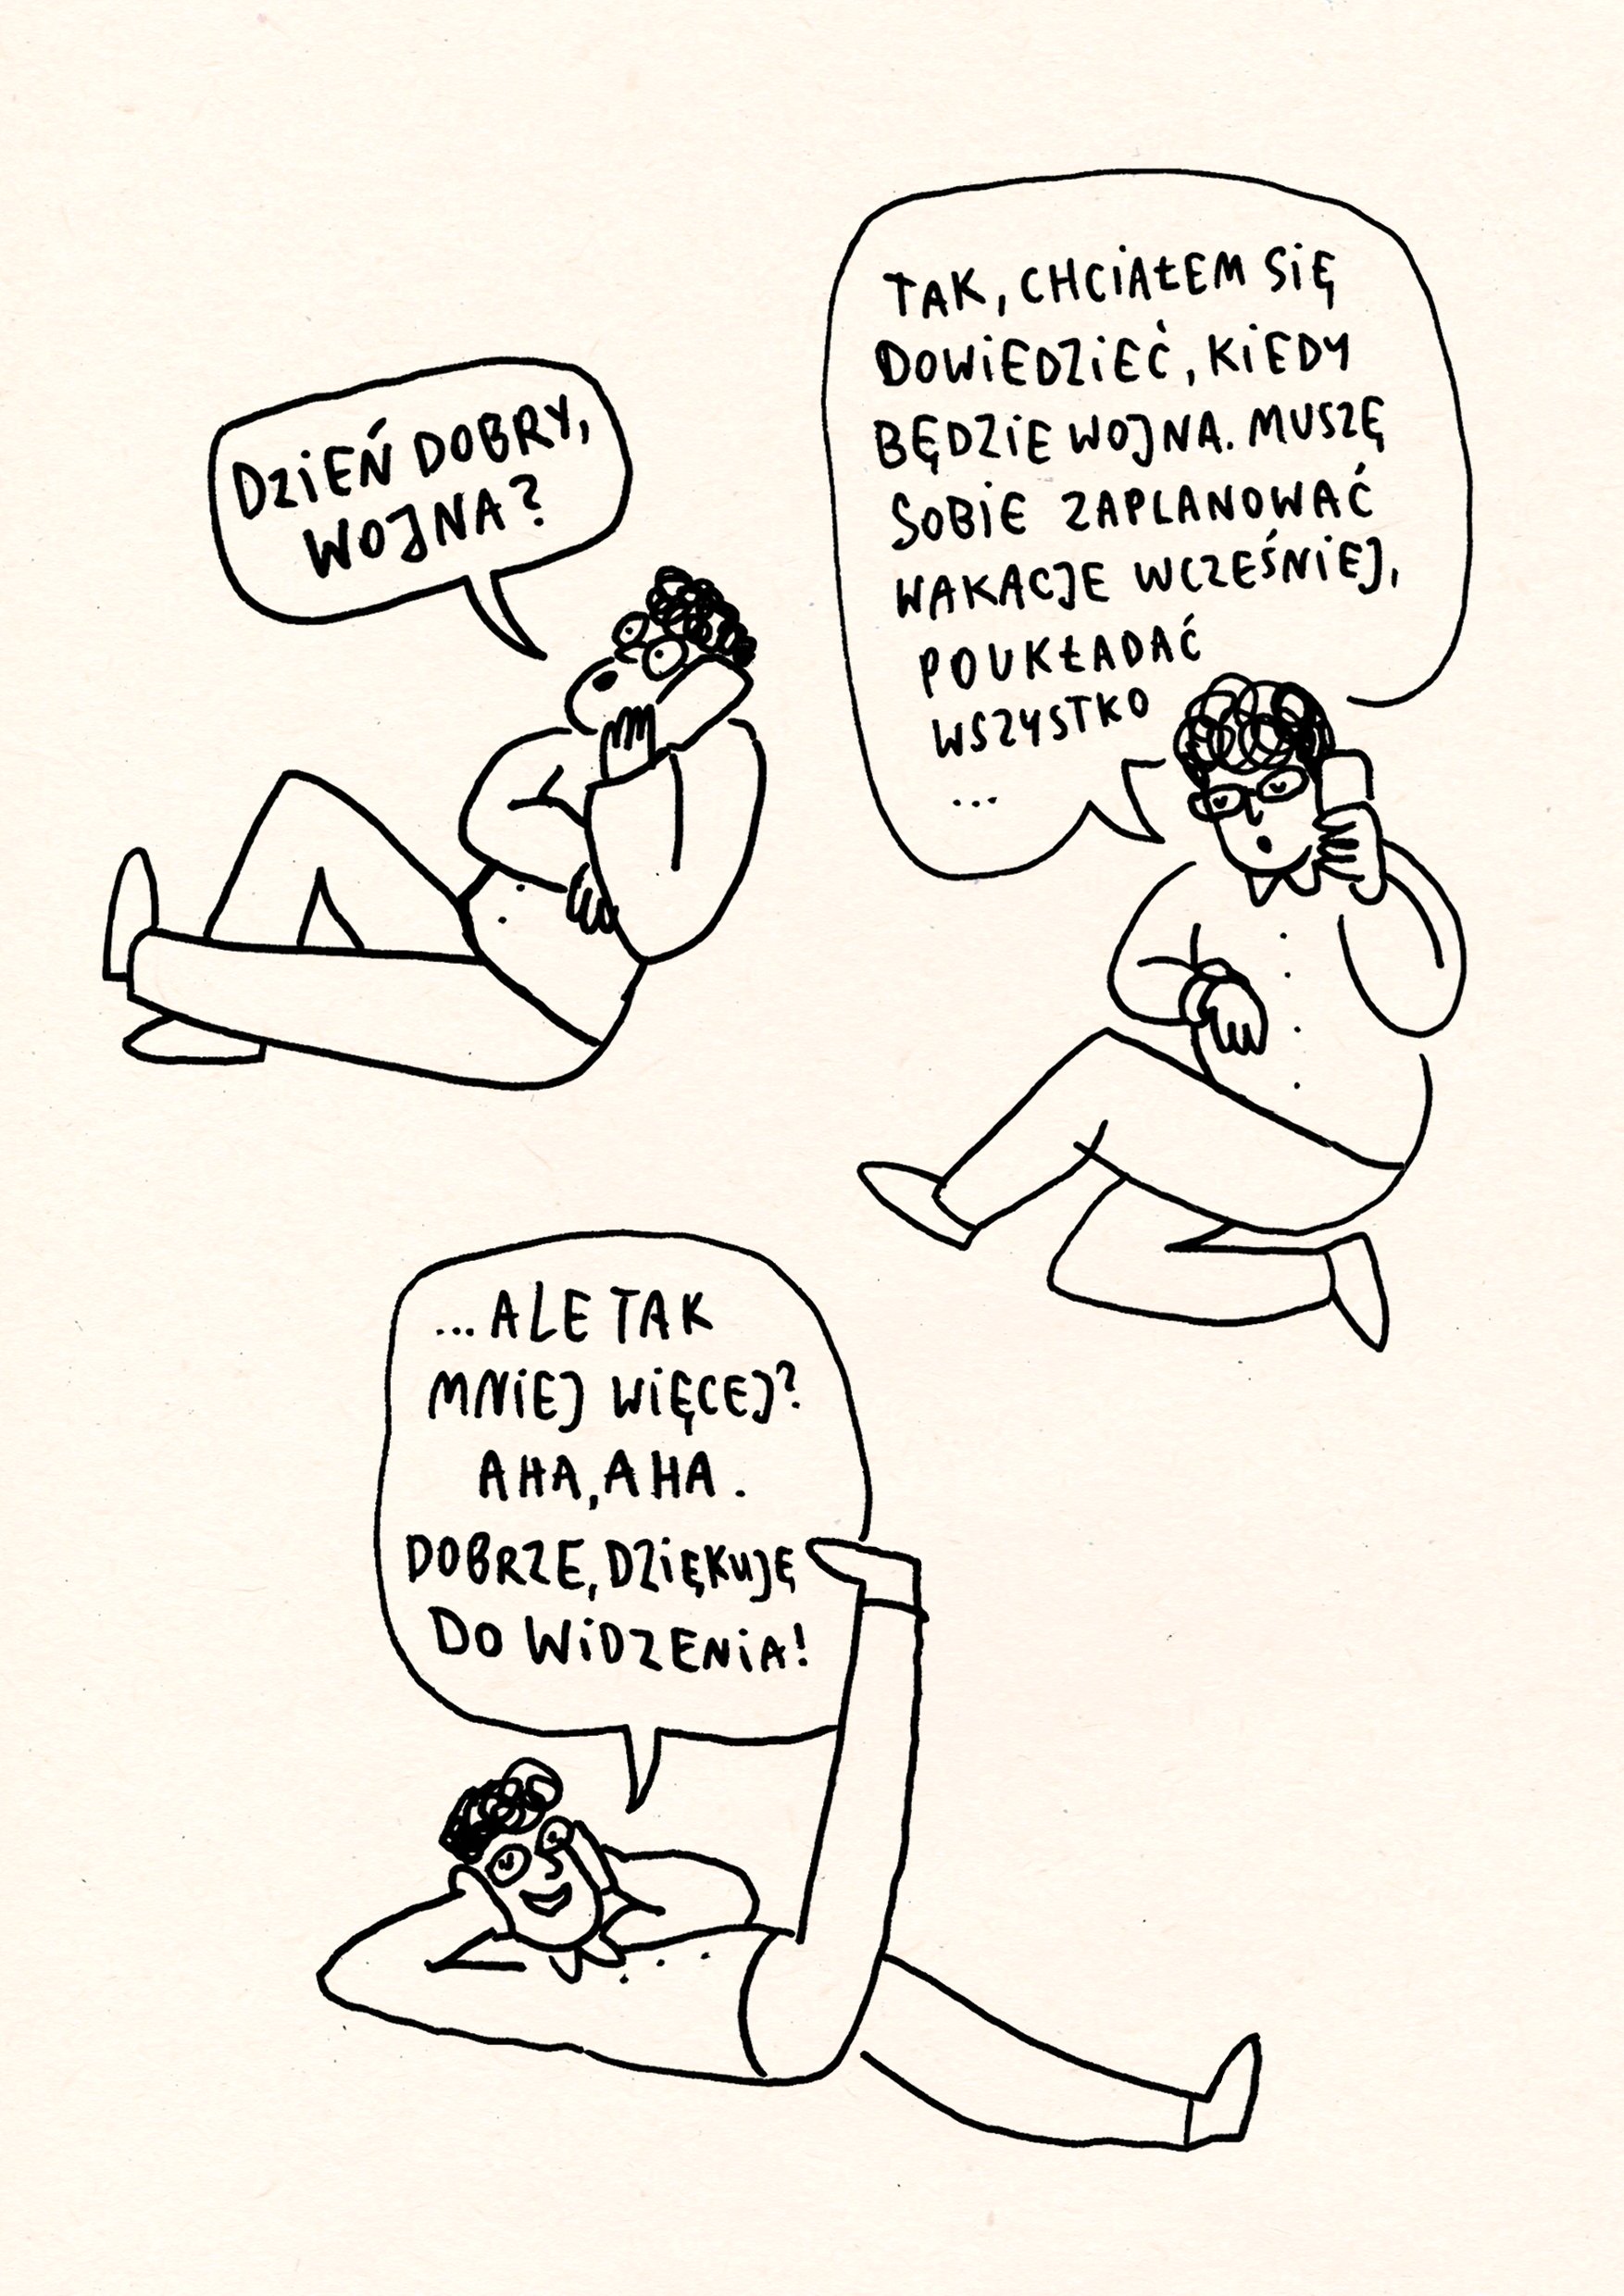 DZIEŃ DOBRY,
WOJNA?
TAK, CHCIAŁEM SIĘ
DOWIEDZIEĆ, KIEDY
BĘDZIE WOJNA. MUSZĘ
SOBIE ZAPLANOWAĆ
WAKACJE WCZEŚNIEJ,
POUKŁADAĆ
WSZYSTKO
...
...ALE TAK
MNIEJ WIĘCEJ?
AHA, AHA.
DOBRZE, DZIĘKUJĘ
DO WIDZENIA!